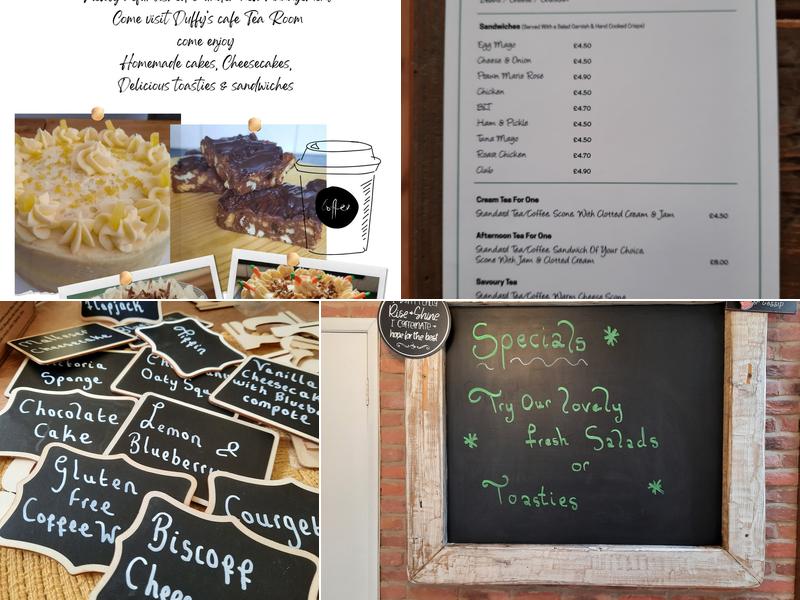 Come visit Duffy's cafe Tea Room
come enjoy
Homemade cakes, Cheesecakes,
Delicious toasties & sandwiches
Coffee
Sandwiches (Served With a Salad Garnish & Hand Cooked Crisps)
Egg Mayo £4.50
Cheese & Onion £4.50
Prawn Marie Rose £4.90
Chicken £4.50
BLT £4.70
Ham & Pickle £4.50
Tuna Mayo £4.50
Roast Chicken £4.70
Club £4.90
Cream Tea For One
Standard Tea/Coffee Scone With Clotted Cream & Jam £4.50
Afternoon Tea For One
Standard Tea/Coffee Sandwich Of Your Choice
Scone With Jam & Clotted Cream £8.00
Savoury Tea
Standard Tea/Coffee Warm Cheese Scone
Flapjack
Malteser
Cheesecake
Tiffin
Victoria
Sponge
Oaty Squ
Vanilla
Cheesecak
with Blueb
compote
Chocolate
Cake
Lemon &
Blueberr
Gluten
free
Coffee W
Courget
Biscoff
Chee
Rise & Shine
hope for the best
Gossip
Specials
Try Our lovely
fresh Salads
or
Toasties